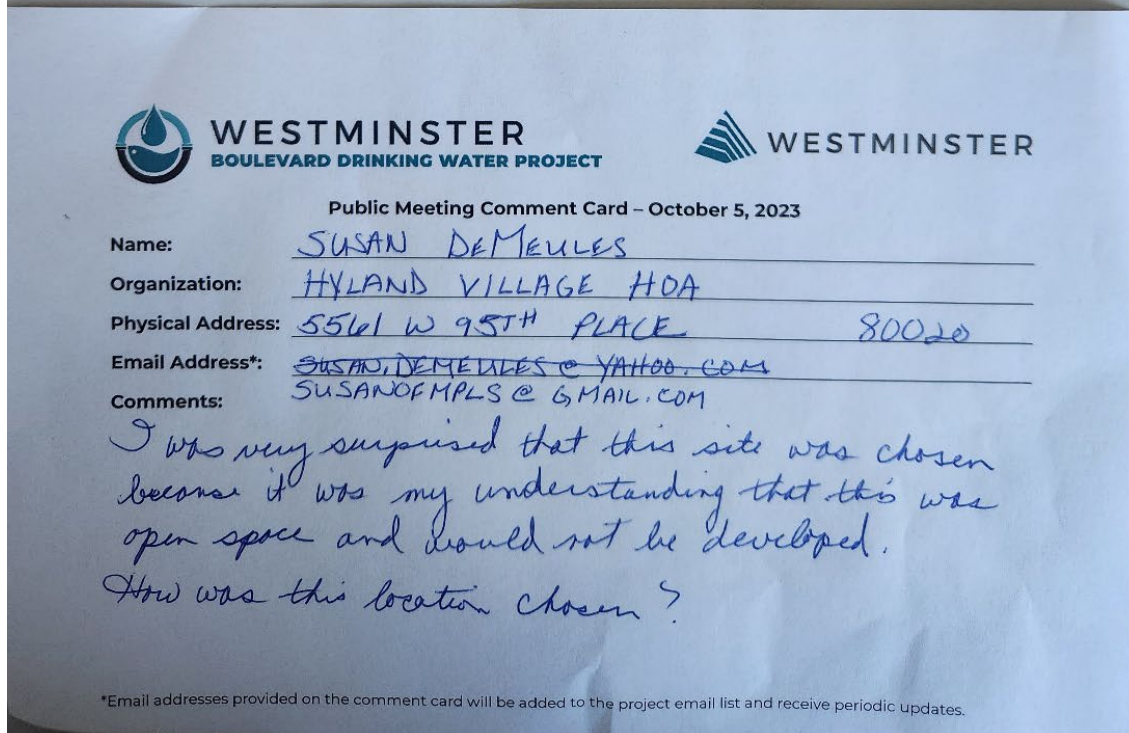 WESTMINSTER
BOULEVARD DRINKING WATER PROJECT
WESTMINSTER
Public Meeting Comment Card – October 5, 2023
Name: SUSAN DEMEULES
Organization: HYLAND VILLAGE HOA
Physical Address: 5561 W 95TH PLACE 80020
Email Address*: SUSAN.DEMEULES @ YAHOO.COM
SUSANOFMPLS @ GMAIL.COM
Comments:
I was very surprised that this site was chosen
because it was my understanding that this was
open space and would not be developed.
How was this location chosen?
*Email addresses provided on the comment card will be added to the project email list and receive periodic updates.